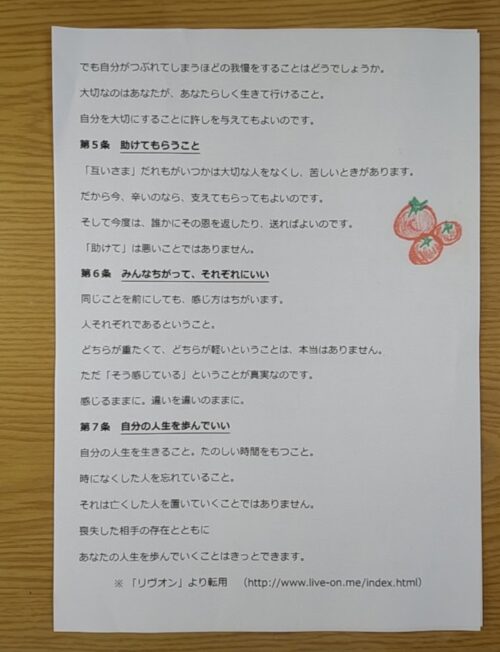 でも自分がつぶれてしまうほどの我慢をすることはどうでしょうか。
大切なのはあなたが、あなたらしく生きて行けること。
自分を大切にすることに許しを与えてもよいのです。
第5条　助けてもらうこと
「互いさま」だれもがいつかは大切な人をなくし、苦しいときがあります。
だから今、辛いのなら、支えてもらってもよいのです。
そして今度は、誰かにその恩を返したり、送ればよいのです。
「助けて」は悪いことではありません。
第6条　みんなちがって、それぞれにいい
同じことを前にしても、感じ方はちがいます。
人それぞれであるということ。
どちらが重たくて、どちらが軽いということは、本当はありません。
ただ「そう感じている」ということが真実なのです。
感じるままに。違いを違いのままに。
第7条　自分の人生を歩んでいい
自分の人生を生きること。たのしい時間をもつこと。
時になくした人を忘れていること。
それは亡くした人を置いていくことではありません。
喪失した相手の存在とともに
あなたの人生を歩んでいくことはきっとできます。
※「リヴオン」より転用　（http://www.live-on.me/index.html）